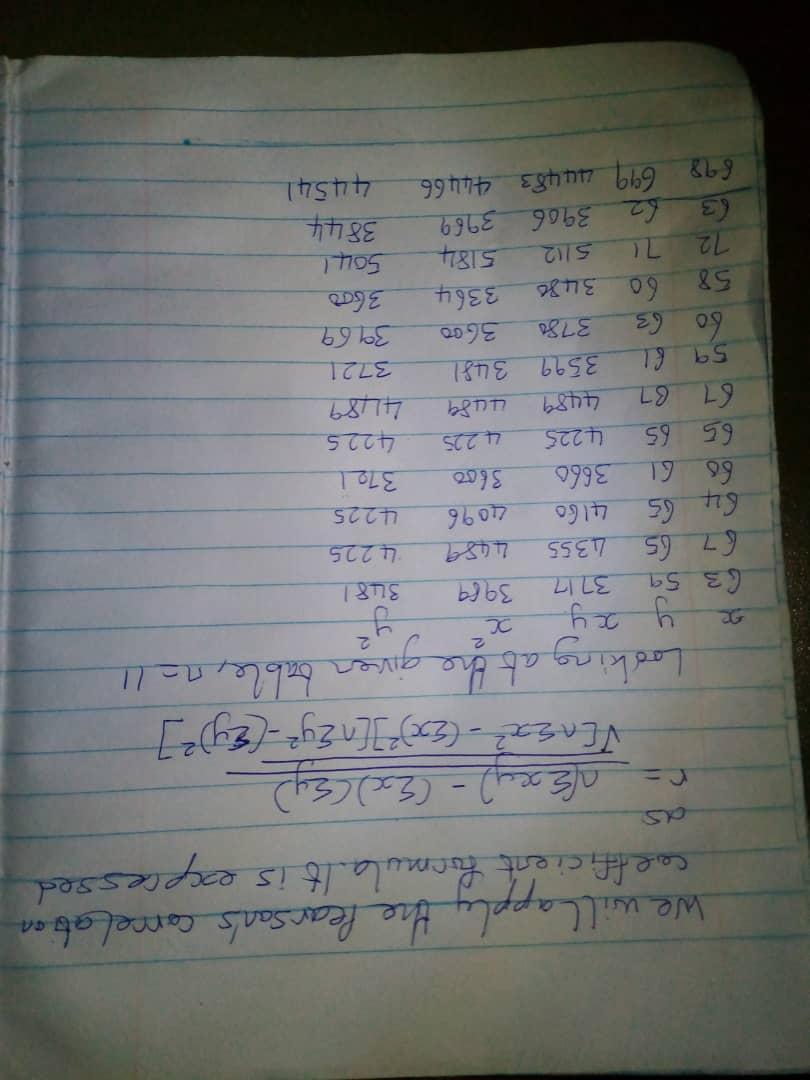 We will apply the Pearson's correlation
coefficient formula. It is expressed
as
r = n(Σxy) - (Σx)(Σy)
√[nΣx² - (Σx)²][nΣy² - (Σy)²]
Looking at the given table, n = 11
x y xy x² y²
63 59 3717 3969 3481
67 65 4355 4489 4225
64 65 4160 4096 4225
60 61 3660 3600 3721
65 65 4225 4225 4225
67 67 4489 4489 4489
59 61 3599 3481 3721
60 63 3780 3600 3969
58 60 3480 3364 3600
72 71 5112 5184 5041
63 62 3906 3969 3844
698 699 44483 44466 44541